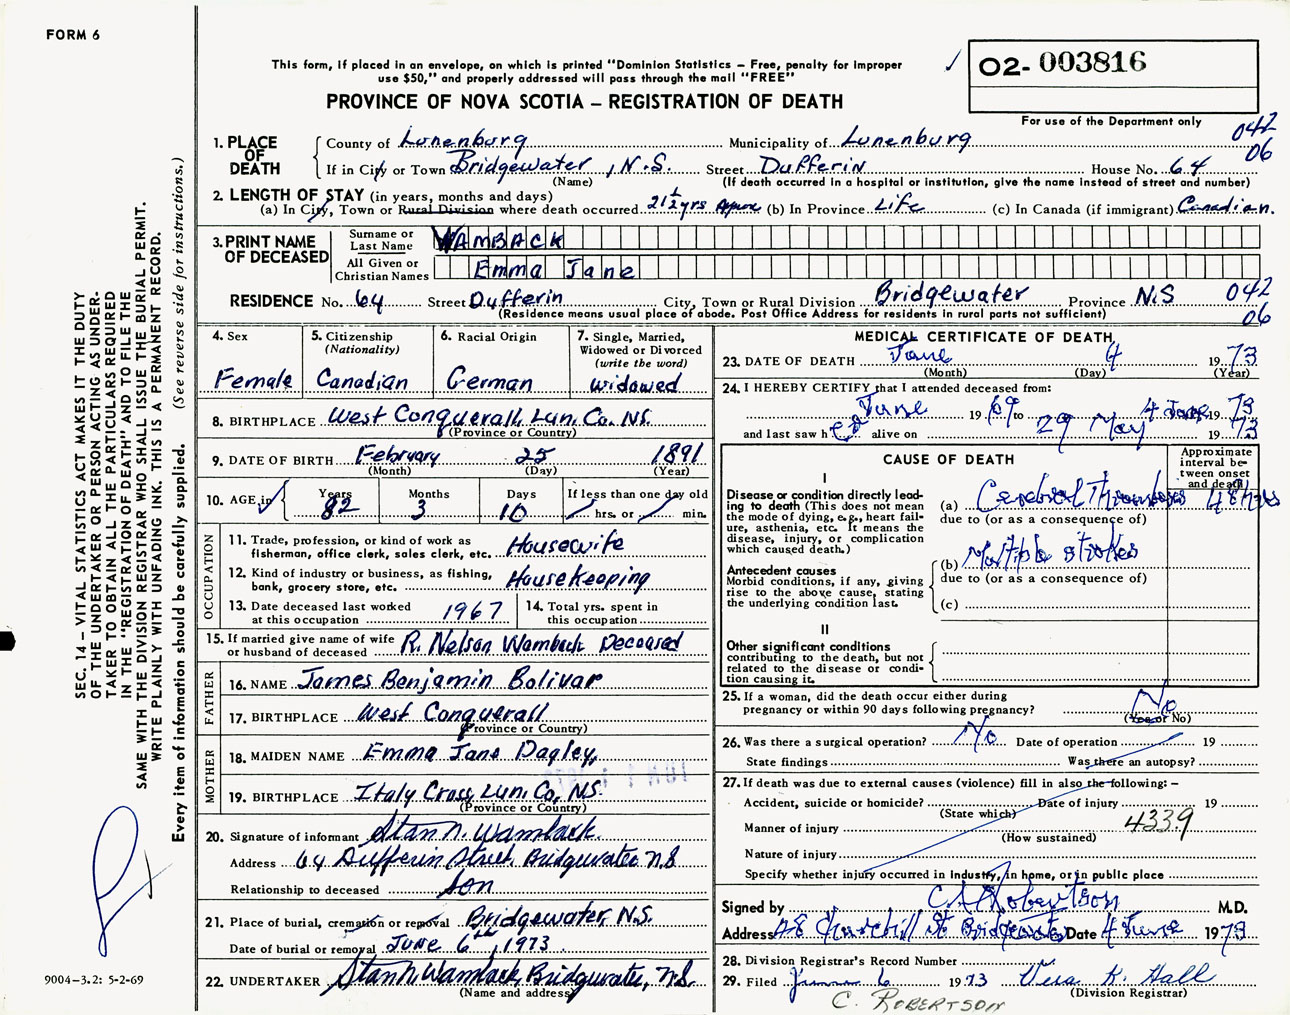 FORM 6
This form, if placed in an envelope, on which is printed "Dominion Statistics – Free, penalty for improper
use $50," and properly addressed will pass through the mail "FREE"
PROVINCE OF NOVA SCOTIA – REGISTRATION OF DEATH
02- 003816
For use of the Department only
042
06
1. PLACE OF DEATH
County of Lunenburg Municipality of Lunenburg
If in City or Town Bridgewater, N.S. Street Dufferin House No. 64
(Name) (If death occurred in a hospital or institution, give the name instead of street and number)
2. LENGTH OF STAY (in years, months and days)
(a) In City, Town or Rural Division where death occurred 21½ yrs Approx (b) In Province Life (c) In Canada (if immigrant) Canadian.
3. PRINT NAME OF DECEASED
Surname or Last Name WAMBACK
All Given or Christian Names Emma Jane
RESIDENCE No. 64 Street Dufferin City, Town or Rural Division Bridgewater Province N.S 042
(Residence means usual place of abode. Post Office Address for residents in rural parts not sufficient) 06
4. Sex Female
5. Citizenship (Nationality) Canadian
6. Racial Origin German
7. Single, Married, Widowed or Divorced (write the word) widowed
8. BIRTHPLACE West Conquerall, Lun. Co. N.S.
(Province or Country)
9. DATE OF BIRTH February 25 1891
(Month) (Day) (Year)
10. AGE in Years 82 Months 3 Days 10 If less than one day old hrs. or min.
OCCUPATION
11. Trade, profession, or kind of work as fisherman, office clerk, sales clerk, etc. Housewife
12. Kind of industry or business, as fishing, bank, grocery store, etc. Housekeeping
13. Date deceased last worked at this occupation 1967
14. Total yrs. spent in this occupation
15. If married give name of wife or husband of deceased R. Nelson Wamback Deceased
FATHER
16. NAME James Benjamin Bolivar
17. BIRTHPLACE West Conquerall
(Province or Country)
MOTHER
18. MAIDEN NAME Emma Jane Dagley,
19. BIRTHPLACE Italy Cross, Lun. Co, N.S.
(Province or Country)
20. Signature of informant Stan N. Wamback
Address 64 Dufferin Street, Bridgewater N.S
Relationship to deceased Son
21. Place of burial, cremation or removal Bridgewater, N.S.
Date of burial or removal June 6th, 1973
22. UNDERTAKER Stan N. Wamback, Bridgewater, N.S.
(Name and address)
MEDICAL CERTIFICATE OF DEATH
23. DATE OF DEATH June 4 1973
(Month) (Day) (Year)
24. I HEREBY CERTIFY that I attended deceased from:
June 1969 to 4 June 1973
and last saw her alive on 29 May 1973
CAUSE OF DEATH
Approximate interval between onset and death
I
Disease or condition directly leading to death (This does not mean the mode of dying, e.g., heart failure, asthenia, etc. It means the disease, injury, or complication which caused death.)
(a) Cerebral Thrombosis 48 hrs
due to (or as a consequence of)
Antecedent causes
Morbid conditions, if any, giving rise to the above cause, stating the underlying condition last.
(b) Multiple strokes
due to (or as a consequence of)
(c)
II
Other significant conditions
contributing to the death, but not related to the disease or condition causing it.
25. If a woman, did the death occur either during pregnancy or within 90 days following pregnancy? No
(Yes or No)
26. Was there a surgical operation? No Date of operation 19
State findings Was there an autopsy?
27. If death was due to external causes (violence) fill in also the following: –
Accident, suicide or homicide? Date of injury 19
(State which)
Manner of injury 4339
(How sustained)
Nature of injury
Specify whether injury occurred in industry, in home, or in public place
Signed by C A Robertson M.D.
Address 28 Churchill St Bridgewater Date 4 June 1973
28. Division Registrar's Record Number
29. Filed June 6 1973 Vera K. Hall
(Division Registrar)
C. ROBERTSON
SEC. 14 – VITAL STATISTICS ACT MAKES IT THE DUTY
OF THE UNDERTAKER OR PERSON ACTING AS UNDER-
TAKER TO OBTAIN ALL THE PARTICULARS REQUIRED
IN THE "REGISTRATION OF DEATH" AND TO FILE THE
SAME WITH THE DIVISION REGISTRAR WHO SHALL ISSUE THE BURIAL PERMIT.
WRITE PLAINLY WITH UNFADING INK. THIS IS A PERMANENT RECORD.
Every item of information should be carefully supplied. (See reverse side for instructions.)
9004–3.2: 5-2-69